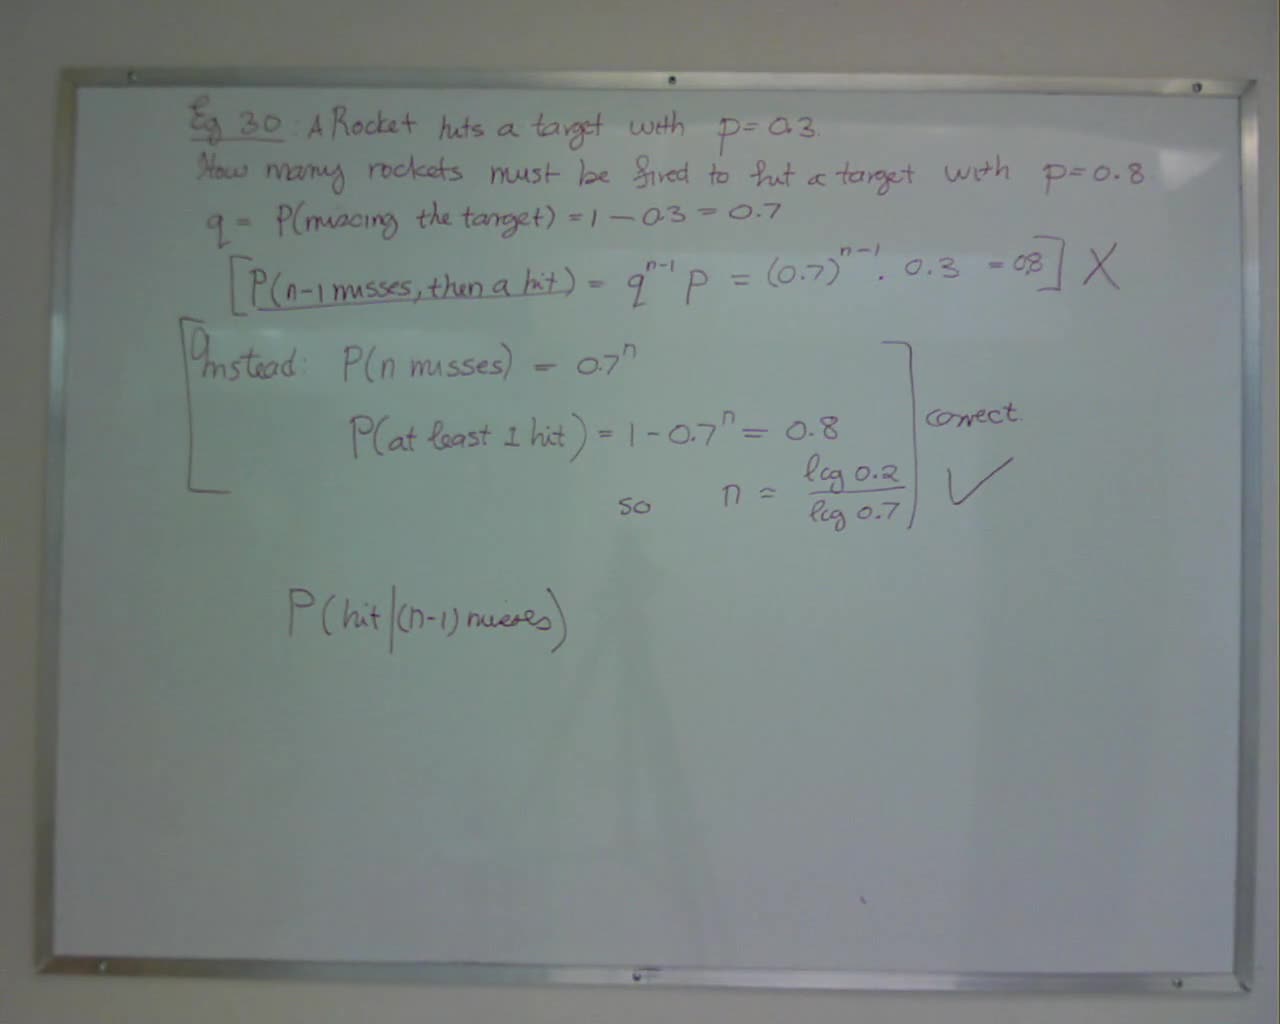 Eg 30: A Rocket hits a target with p = 0.3.
How many rockets must be fired to hit a target with p = 0.8
q = P(missing the target) = 1 - 0.3 = 0.7
[P(n-1 misses, then a hit) = q^{n-1} p = (0.7)^{n-1} . 0.3 = 0.8] X
Instead: P(n misses) = 0.7^n
P(at least 1 hit) = 1 - 0.7^n = 0.8
correct.
so n = log 0.2 / log 0.7 ✓
P(hit|(n-1) misses)